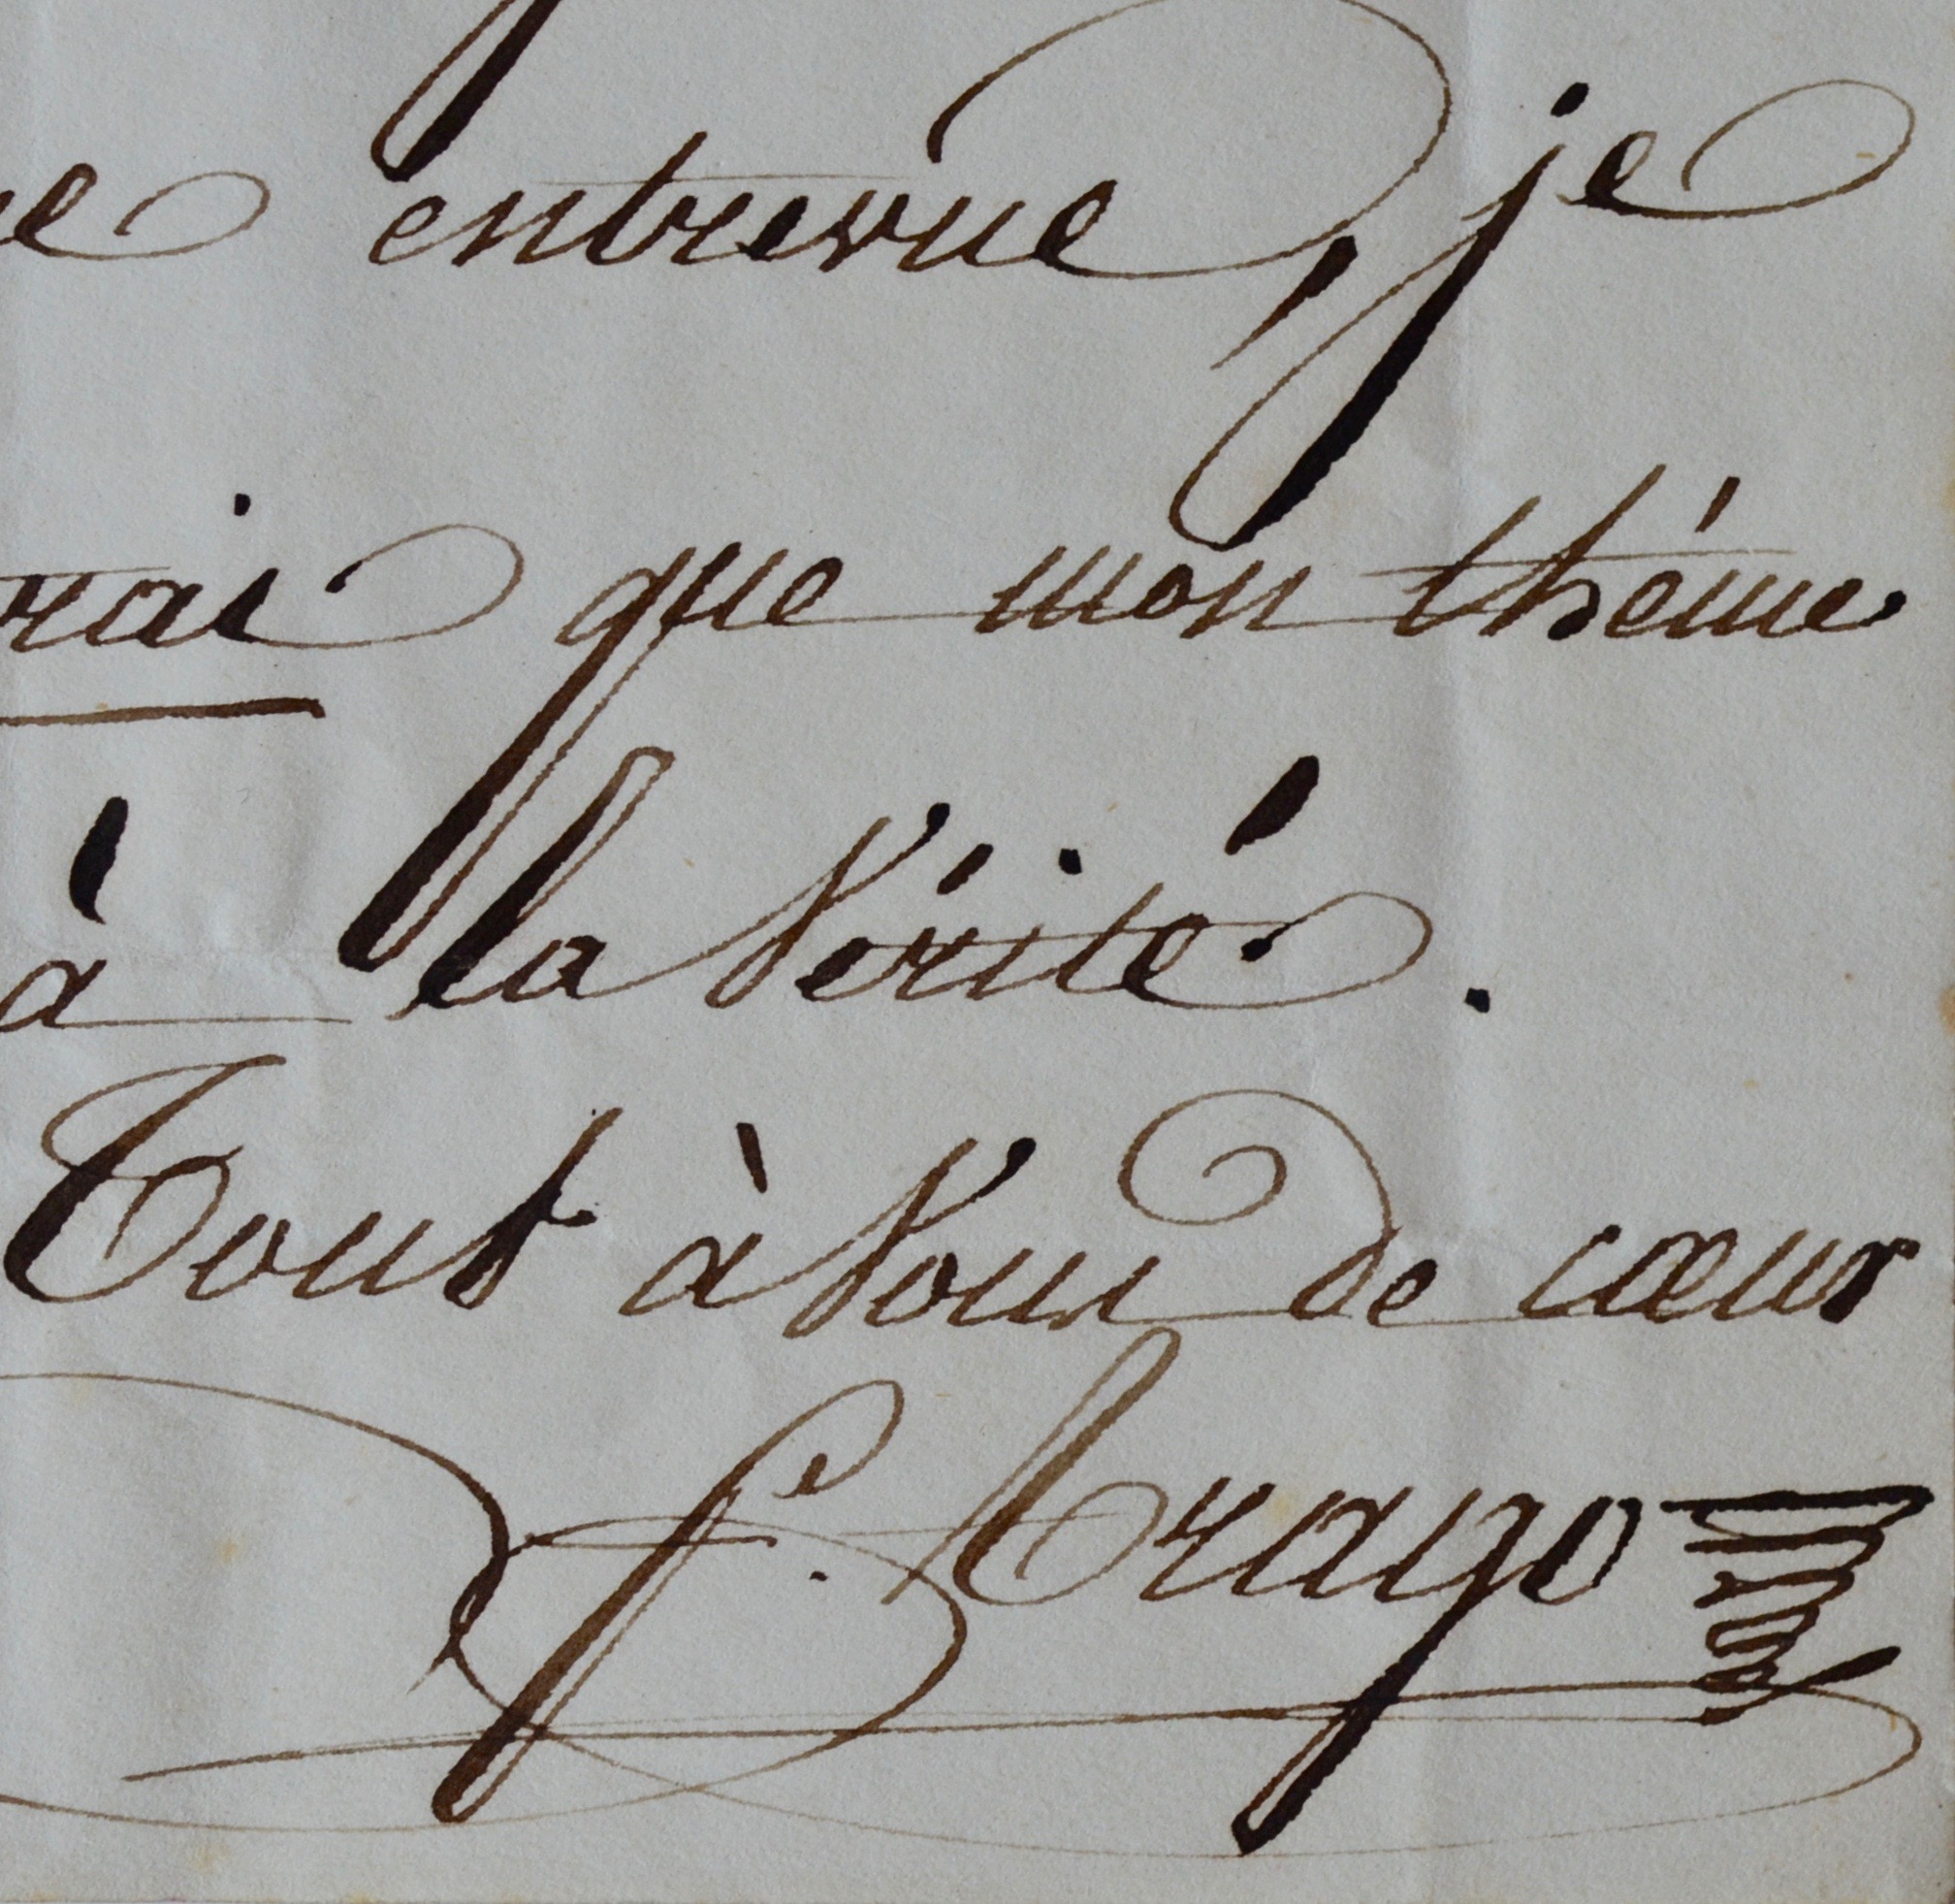 e entrevue, je
rai que mon thême
à la Vérité.
Tout à Vous de cœur
F. Arago